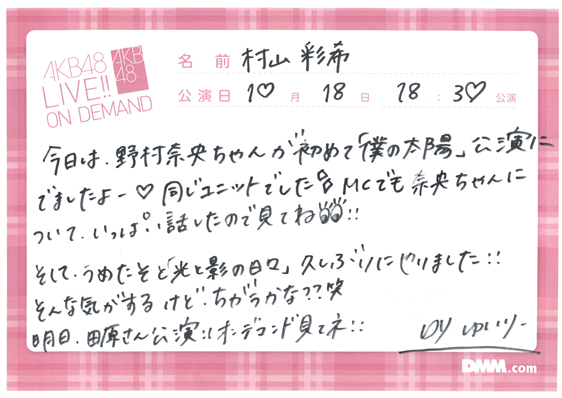 AKB48
LIVE!!
ON DEMAND
AKB
48
名前 村山彩希
公演日 1♡月 18日 18:3♡公演
今日は、野村奈央ちゃんが初めて「僕の太陽」公演に
でましたよー♡ 同じユニットでした MCでも奈央ちゃんに
ついて、いっぱい話したので見てね!!
そして、うめたそと「光と影の日々」久しぶりにやりました!!
そんな気がするけど、ちがうかな??笑
明日、田原さん公演!! オンデコンド見てネ!!
by ゆいりー
DMM.com